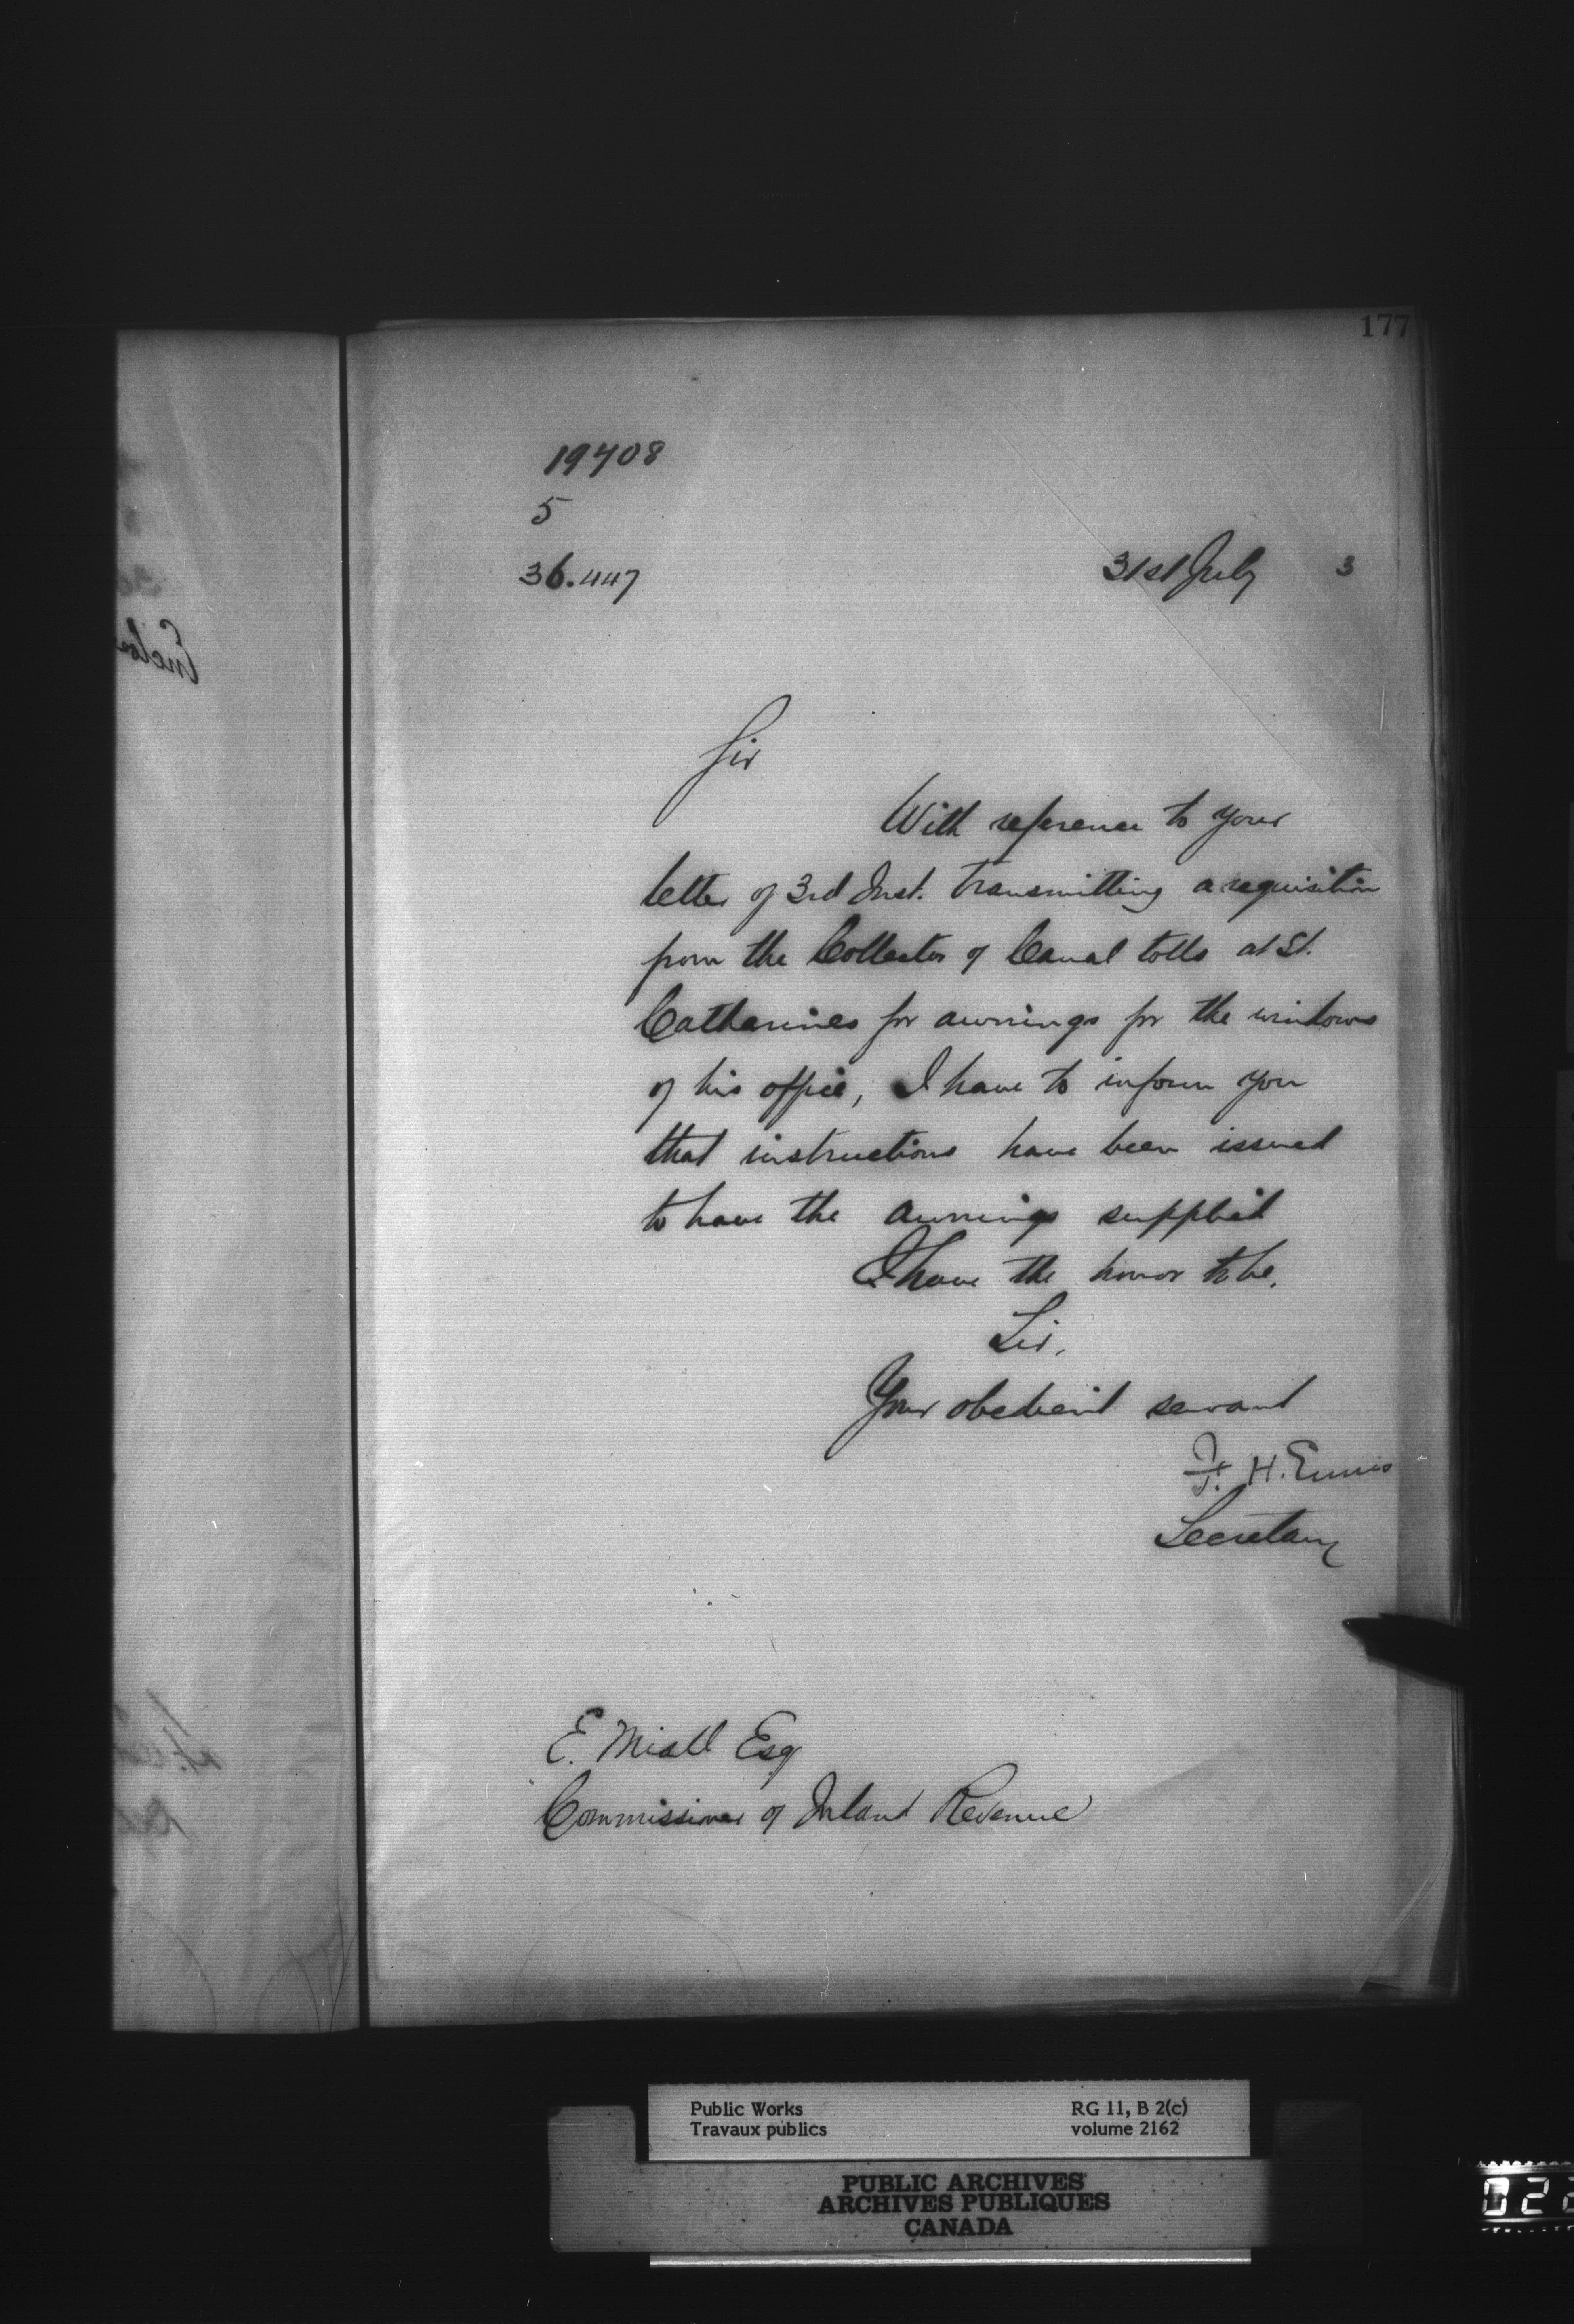 177
19708
5
36.447
31st July 3
Sir
With reference to your
letter of 3rd Inst. transmitting a requisition
from the Collector of Canal tolls at St.
Catharines for awnings for the windows
of his office, I have to inform you
that instructions have been issued
to have the awnings supplied
I have the honor to be,
Sir,
Your obedient servant
F. H. Ennis
Secretary
E. Miall Esq
Commissioner of Inland Revenue
Public Works
Travaux publics
RG 11, B 2(c)
volume 2162
PUBLIC ARCHIVES
ARCHIVES PUBLIQUES
CANADA